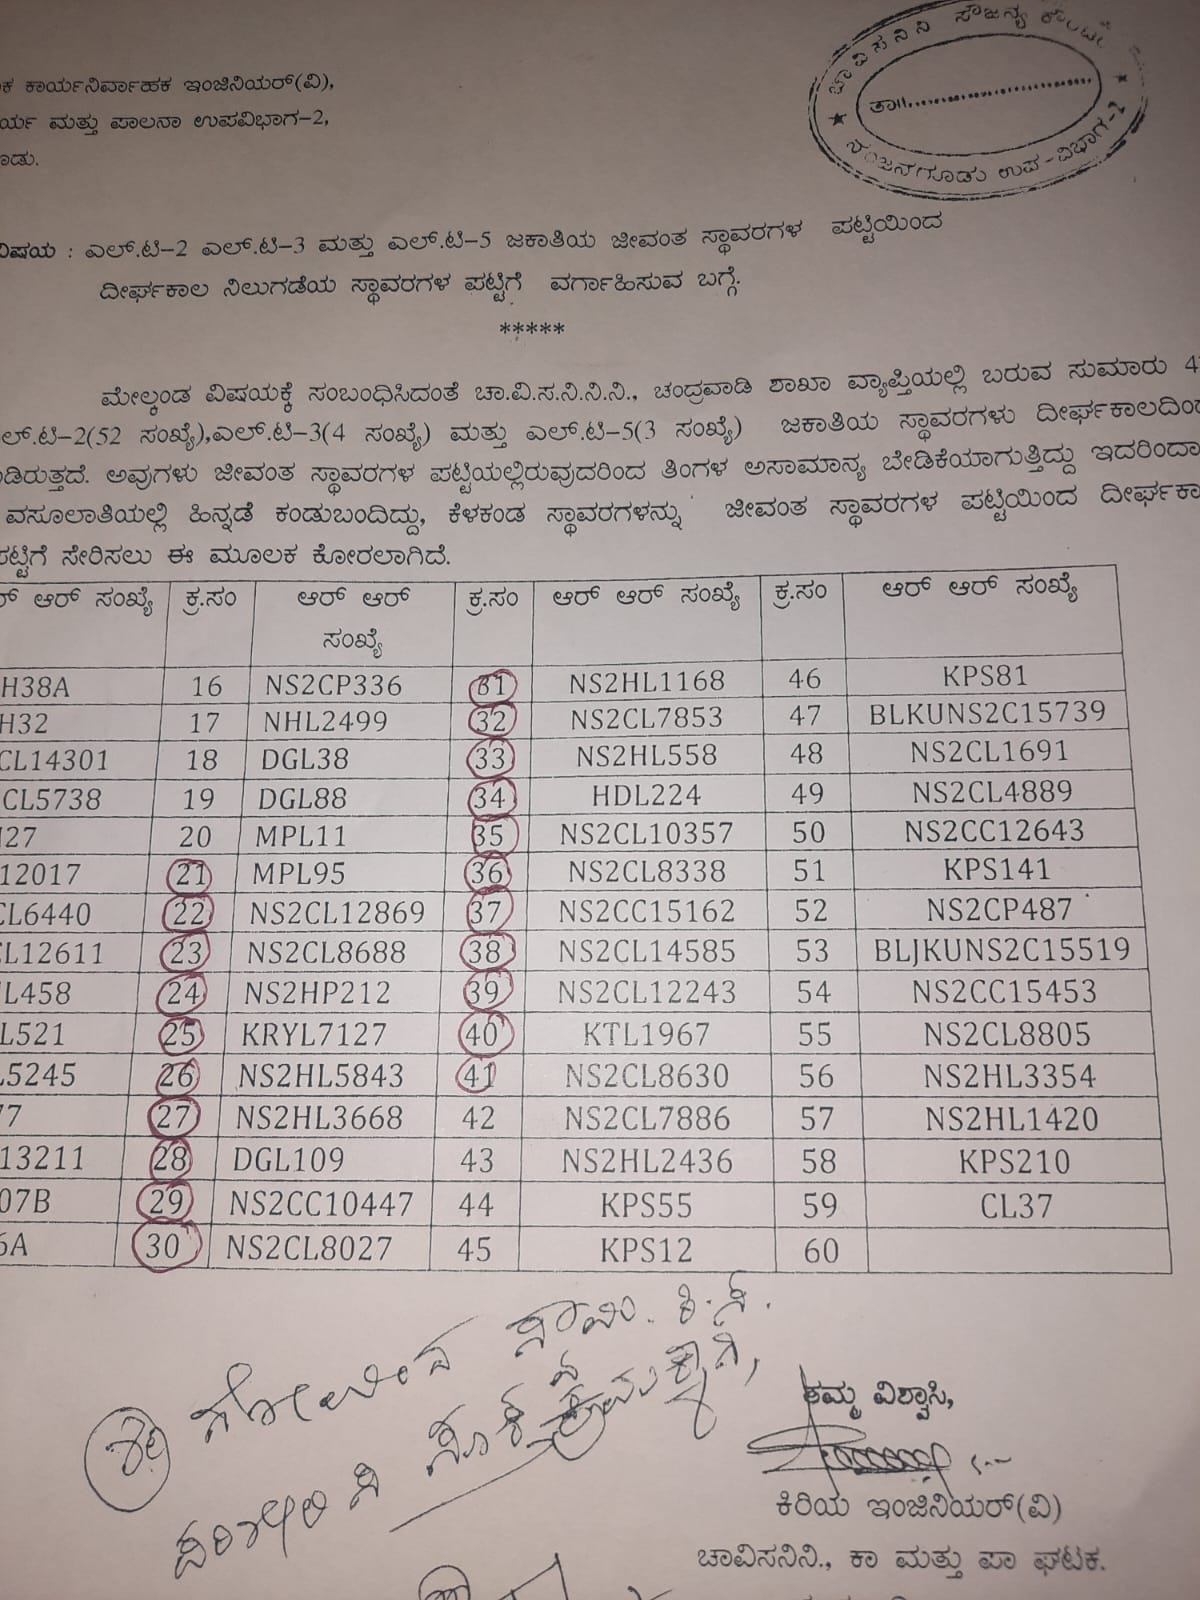 ಚಾವಿಸನಿನಿ ಸೌಜನ್ಯ
ತಾ||
ನಂಜನಗೂಡು ಉಪ-ವಿಭಾಗ-2
ಕ ಕಾರ್ಯನಿರ್ವಾಹಕ ಇಂಜಿನಿಯರ್(ವಿ),
ರ್ಯ ಮತ್ತು ಪಾಲನಾ ಉಪವಿಭಾಗ-2,
ಗೂಡು.
ವಿಷಯ : ಎಲ್.ಟಿ-2 ಎಲ್.ಟಿ-3 ಮತ್ತು ಎಲ್.ಟಿ-5 ಜಕಾತಿಯ ಜೀವಂತ ಸ್ಥಾವರಗಳ ಪಟ್ಟಿಯಿಂದ
ದೀರ್ಘಕಾಲ ನಿಲುಗಡೆಯ ಸ್ಥಾವರಗಳ ಪಟ್ಟಿಗೆ ವರ್ಗಾಹಿಸುವ ಬಗ್ಗೆ.
*****
ಮೇಲ್ಕಂಡ ವಿಷಯಕ್ಕೆ ಸಂಬಂಧಿಸಿದಂತೆ ಚಾ.ವಿ.ಸ.ನಿ.ನಿ.ನಿ., ಚಂದ್ರವಾಡಿ ಶಾಖಾ ವ್ಯಾಪ್ತಿಯಲ್ಲಿ ಬರುವ ಸುಮಾರು 4
ಲ್.ಟಿ-2(52 ಸಂಖ್ಯೆ),ಎಲ್.ಟಿ-3(4 ಸಂಖ್ಯೆ) ಮತ್ತು ಎಲ್.ಟಿ-5(3 ಸಂಖ್ಯೆ) ಜಕಾತಿಯ ಸ್ಥಾವರಗಳು ದೀರ್ಘಕಾಲದಿಂದ
ಡಿರುತ್ತದೆ. ಅವುಗಳು ಜೀವಂತ ಸ್ಥಾವರಗಳ ಪಟ್ಟಿಯಲ್ಲಿರುವುದರಿಂದ ತಿಂಗಳ ಅಸಾಮಾನ್ಯ ಬೇಡಿಕೆಯಾಗುತ್ತಿದ್ದು ಇದರಿಂದಾ
ವಸೂಲಾತಿಯಲ್ಲಿ ಹಿನ್ನಡೆ ಕಂಡುಬಂದಿದ್ದು, ಕೆಳಕಂಡ ಸ್ಥಾವರಗಳನ್ನು ಜೀವಂತ ಸ್ಥಾವರಗಳ ಪಟ್ಟಿಯಿಂದ ದೀರ್ಘಕಾ
ಪಟ್ಟಿಗೆ ಸೇರಿಸಲು ಈ ಮೂಲಕ ಕೋರಲಾಗಿದೆ.
ರ್ ಆರ್ ಸಂಖ್ಯೆ ಕ್ರ.ಸಂ ಆರ್ ಆರ್ ಸಂಖ್ಯೆ ಕ್ರ.ಸಂ ಆರ್ ಆರ್ ಸಂಖ್ಯೆ ಕ್ರ.ಸಂ ಆರ್ ಆರ್ ಸಂಖ್ಯೆ
H38A 16 NS2CP336 31 NS2HL1168 46 KPS81
H32 17 NHL2499 32 NS2CL7853 47 BLKUNS2C15739
CL14301 18 DGL38 33 NS2HL558 48 NS2CL1691
CL5738 19 DGL88 34 HDL224 49 NS2CL4889
27 20 MPL11 35 NS2CL10357 50 NS2CC12643
12017 21 MPL95 36 NS2CL8338 51 KPS141
CL6440 22 NS2CL12869 37 NS2CC15162 52 NS2CP487
L12611 23 NS2CL8688 38 NS2CL14585 53 BLJKUNS2C15519
L458 24 NS2HP212 39 NS2CL12243 54 NS2CC15453
L521 25 KRYL7127 40 KTL1967 55 NS2CL8805
5245 26 NS2HL5843 41 NS2CL8630 56 NS2HL3354
77 27 NS2HL3668 42 NS2CL7886 57 NS2HL1420
13211 28 DGL109 43 NS2HL2436 58 KPS210
07B 29 NS2CC10447 44 KPS55 59 CL37
6A 30 NS2CL8027 45 KPS12 60
ತಮ್ಮ ವಿಶ್ವಾಸಿ,
ಕಿರಿಯ ಇಂಜಿನಿಯರ್(ವಿ)
ಚಾವಿಸನಿನಿ., ಕಾ ಮತ್ತು ಪಾ ಘಟಕ.